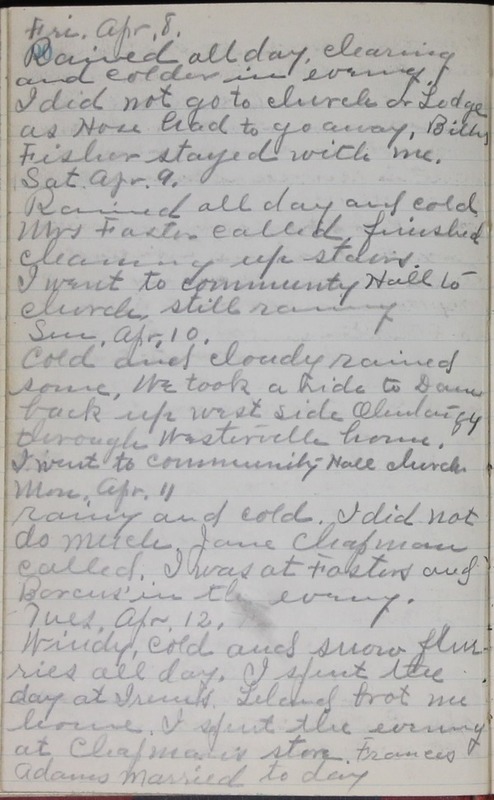 Fri. Apr. 8.
Rained all day, clearing
and colder in evening.
I did not go to church or Lodge
as Hose had to go away, Billy
Fisher stayed with me.
Sat. Apr. 9.
Rained all day and cold
Mrs Foster called finished
cleaning up stairs.
I went to community Hall to
church, still rainy
Sun. Apr. 10.
Cold and cloudy rained
some, We took a ride to Dam
back up west side Olentangy
through Westerville home.
I went to community Hall church
Mon. Apr. 11
rainy and cold. I did not
do much Jane Chapman
called. I was at Fosters and
Borcus' in the evening.
Tues. Apr. 12.
Windy, cold and snow flur-
ries all day. I spent the
day at Irene's. Leland brot me
home. I spent the evening
at Chapman's store. Frances
Adams married to day